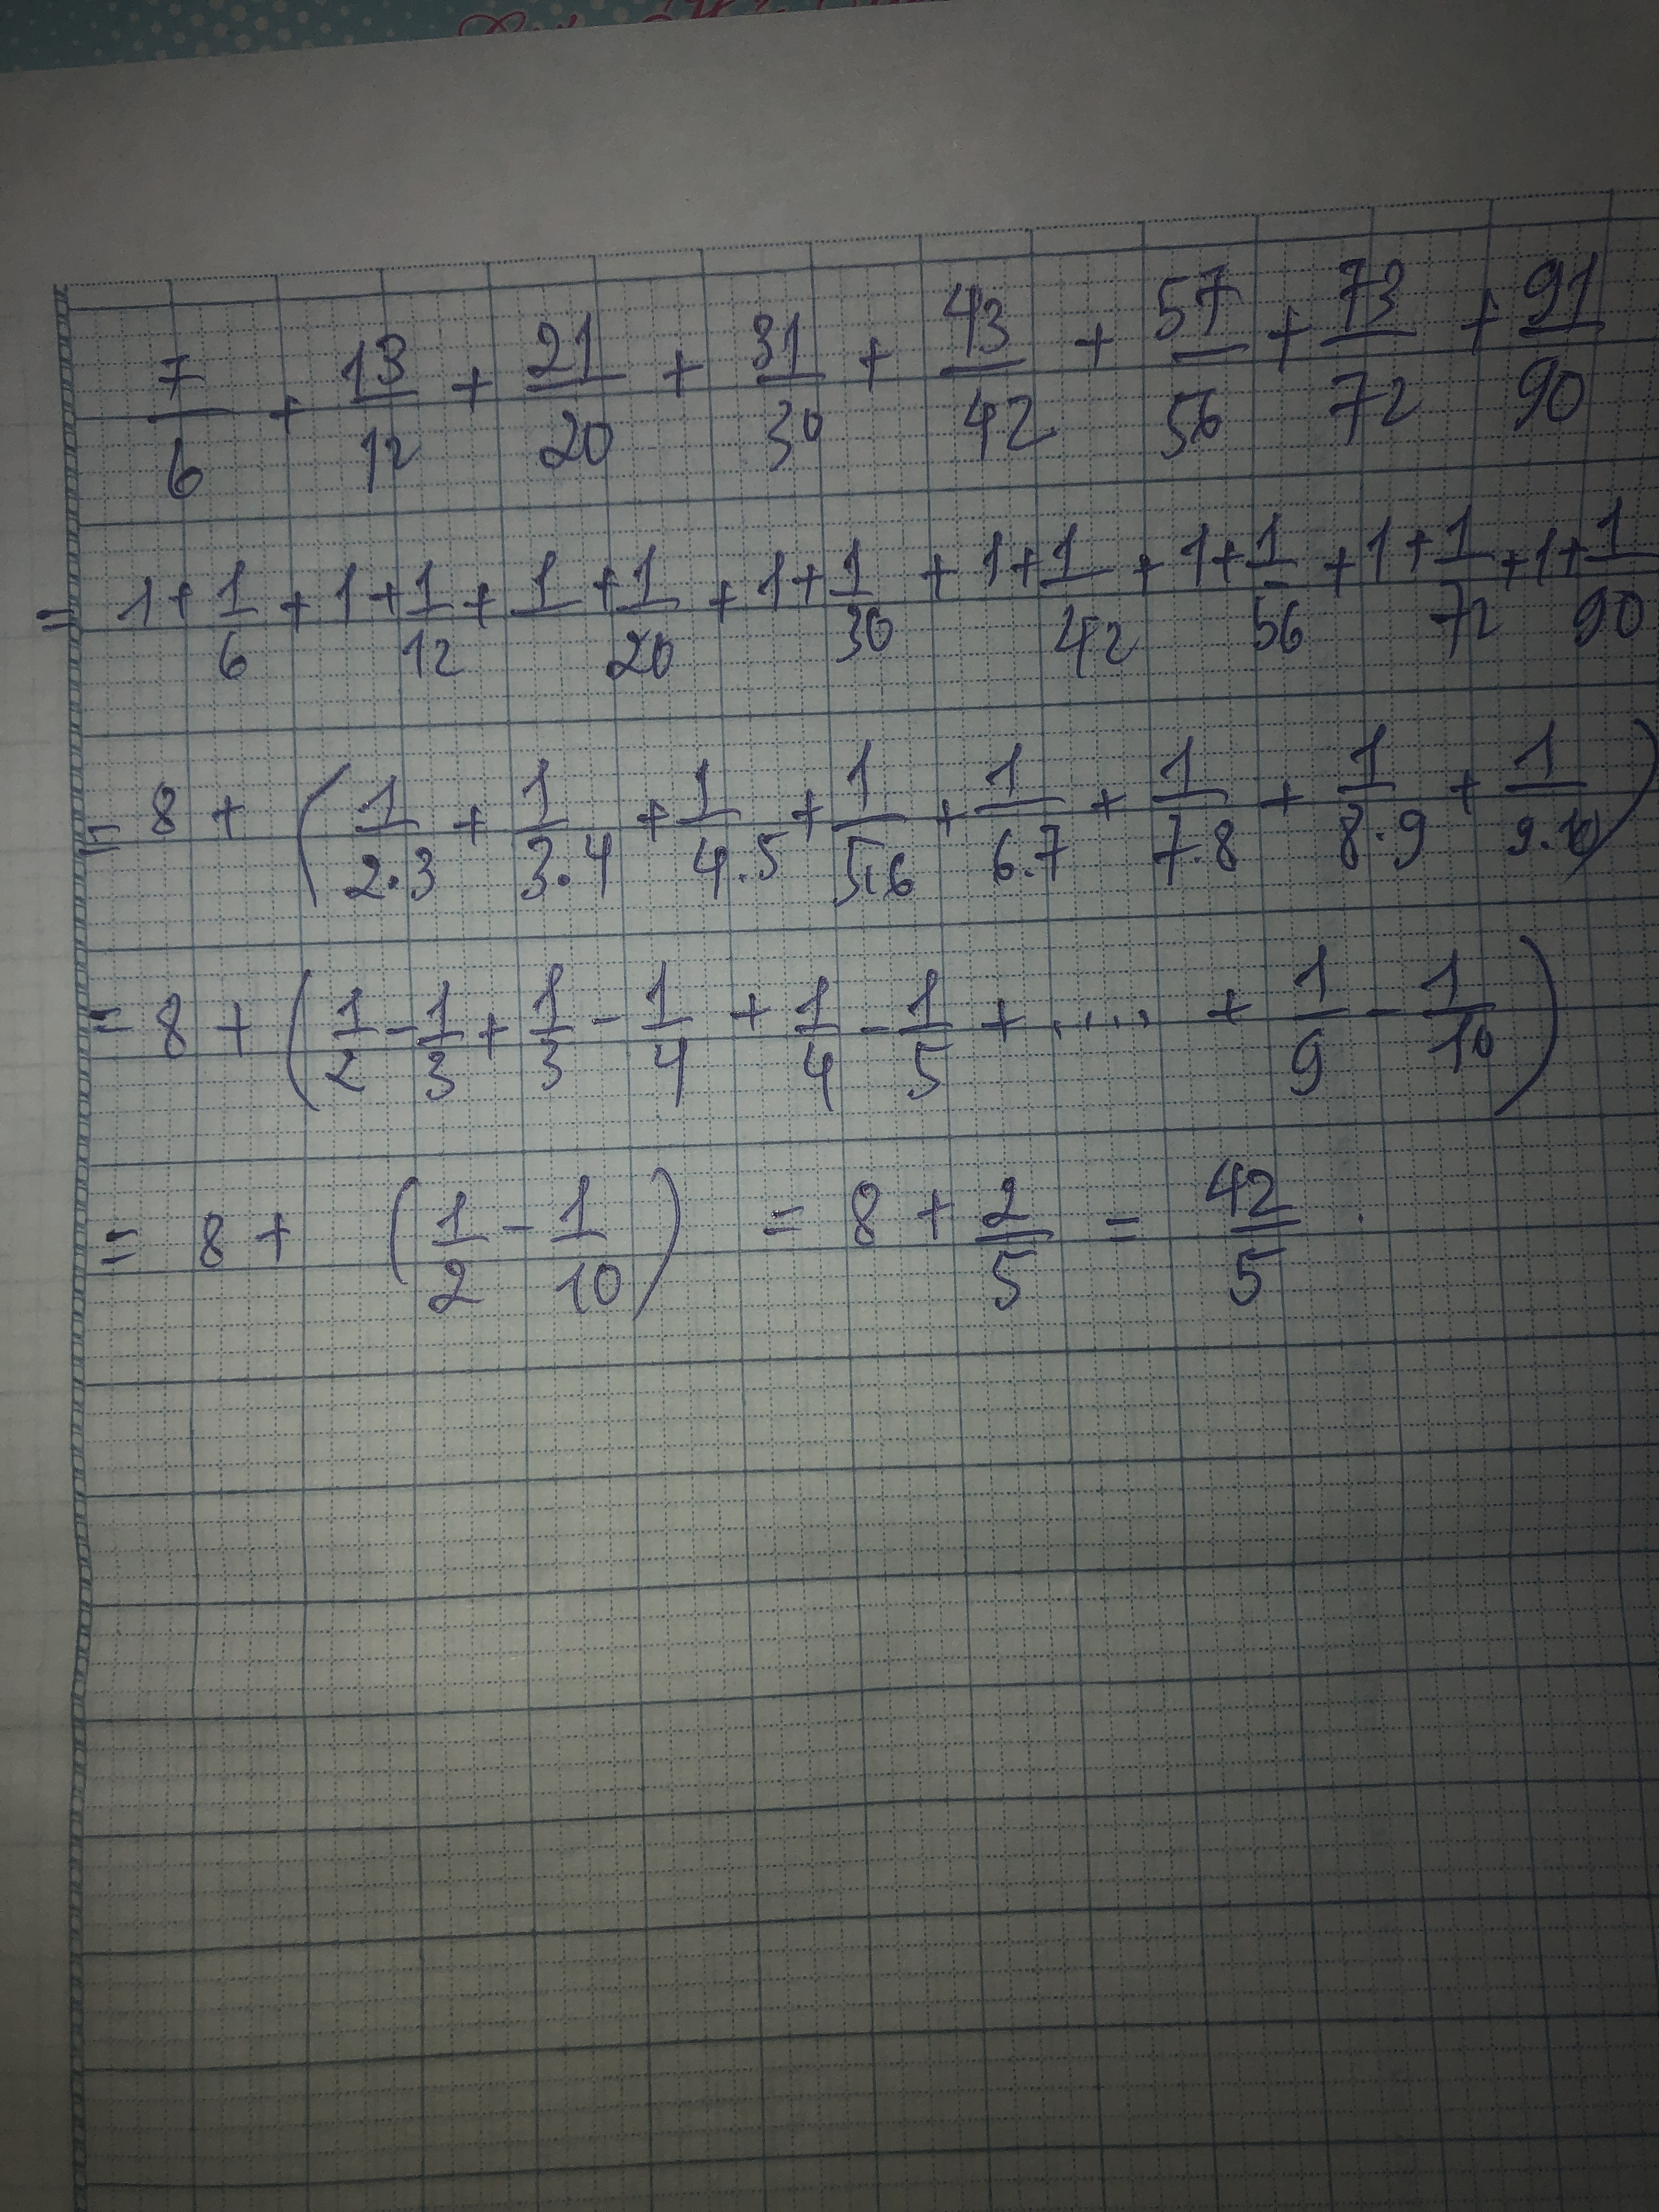 7/6 + 13/12 + 21/20 + 31/30 + 43/42 + 57/56 + 73/72 + 91/90
= 1+1/6 + 1+1/12 + 1+1/20 + 1+1/30 + 1+1/42 + 1+1/56 + 1+1/72 + 1+1/90
= 8 + (1/2.3 + 1/3.4 + 1/4.5 + 1/5.6 + 1/6.7 + 1/7.8 + 1/8.9 + 1/9.10)
= 8 + (1/2 - 1/3 + 1/3 - 1/4 + 1/4 - 1/5 + ..... + 1/9 - 1/10)
= 8 + (1/2 - 1/10) = 8 + 2/5 = 42/5 .